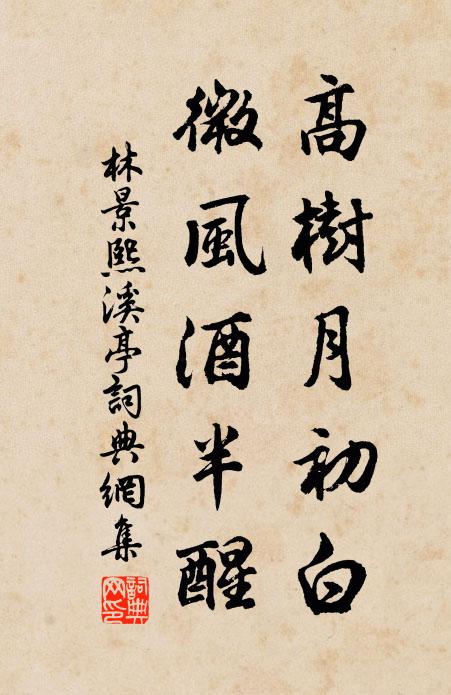 高樹月初白
微風酒半醒
林景熙溪亭詞典網集
詞典
网印